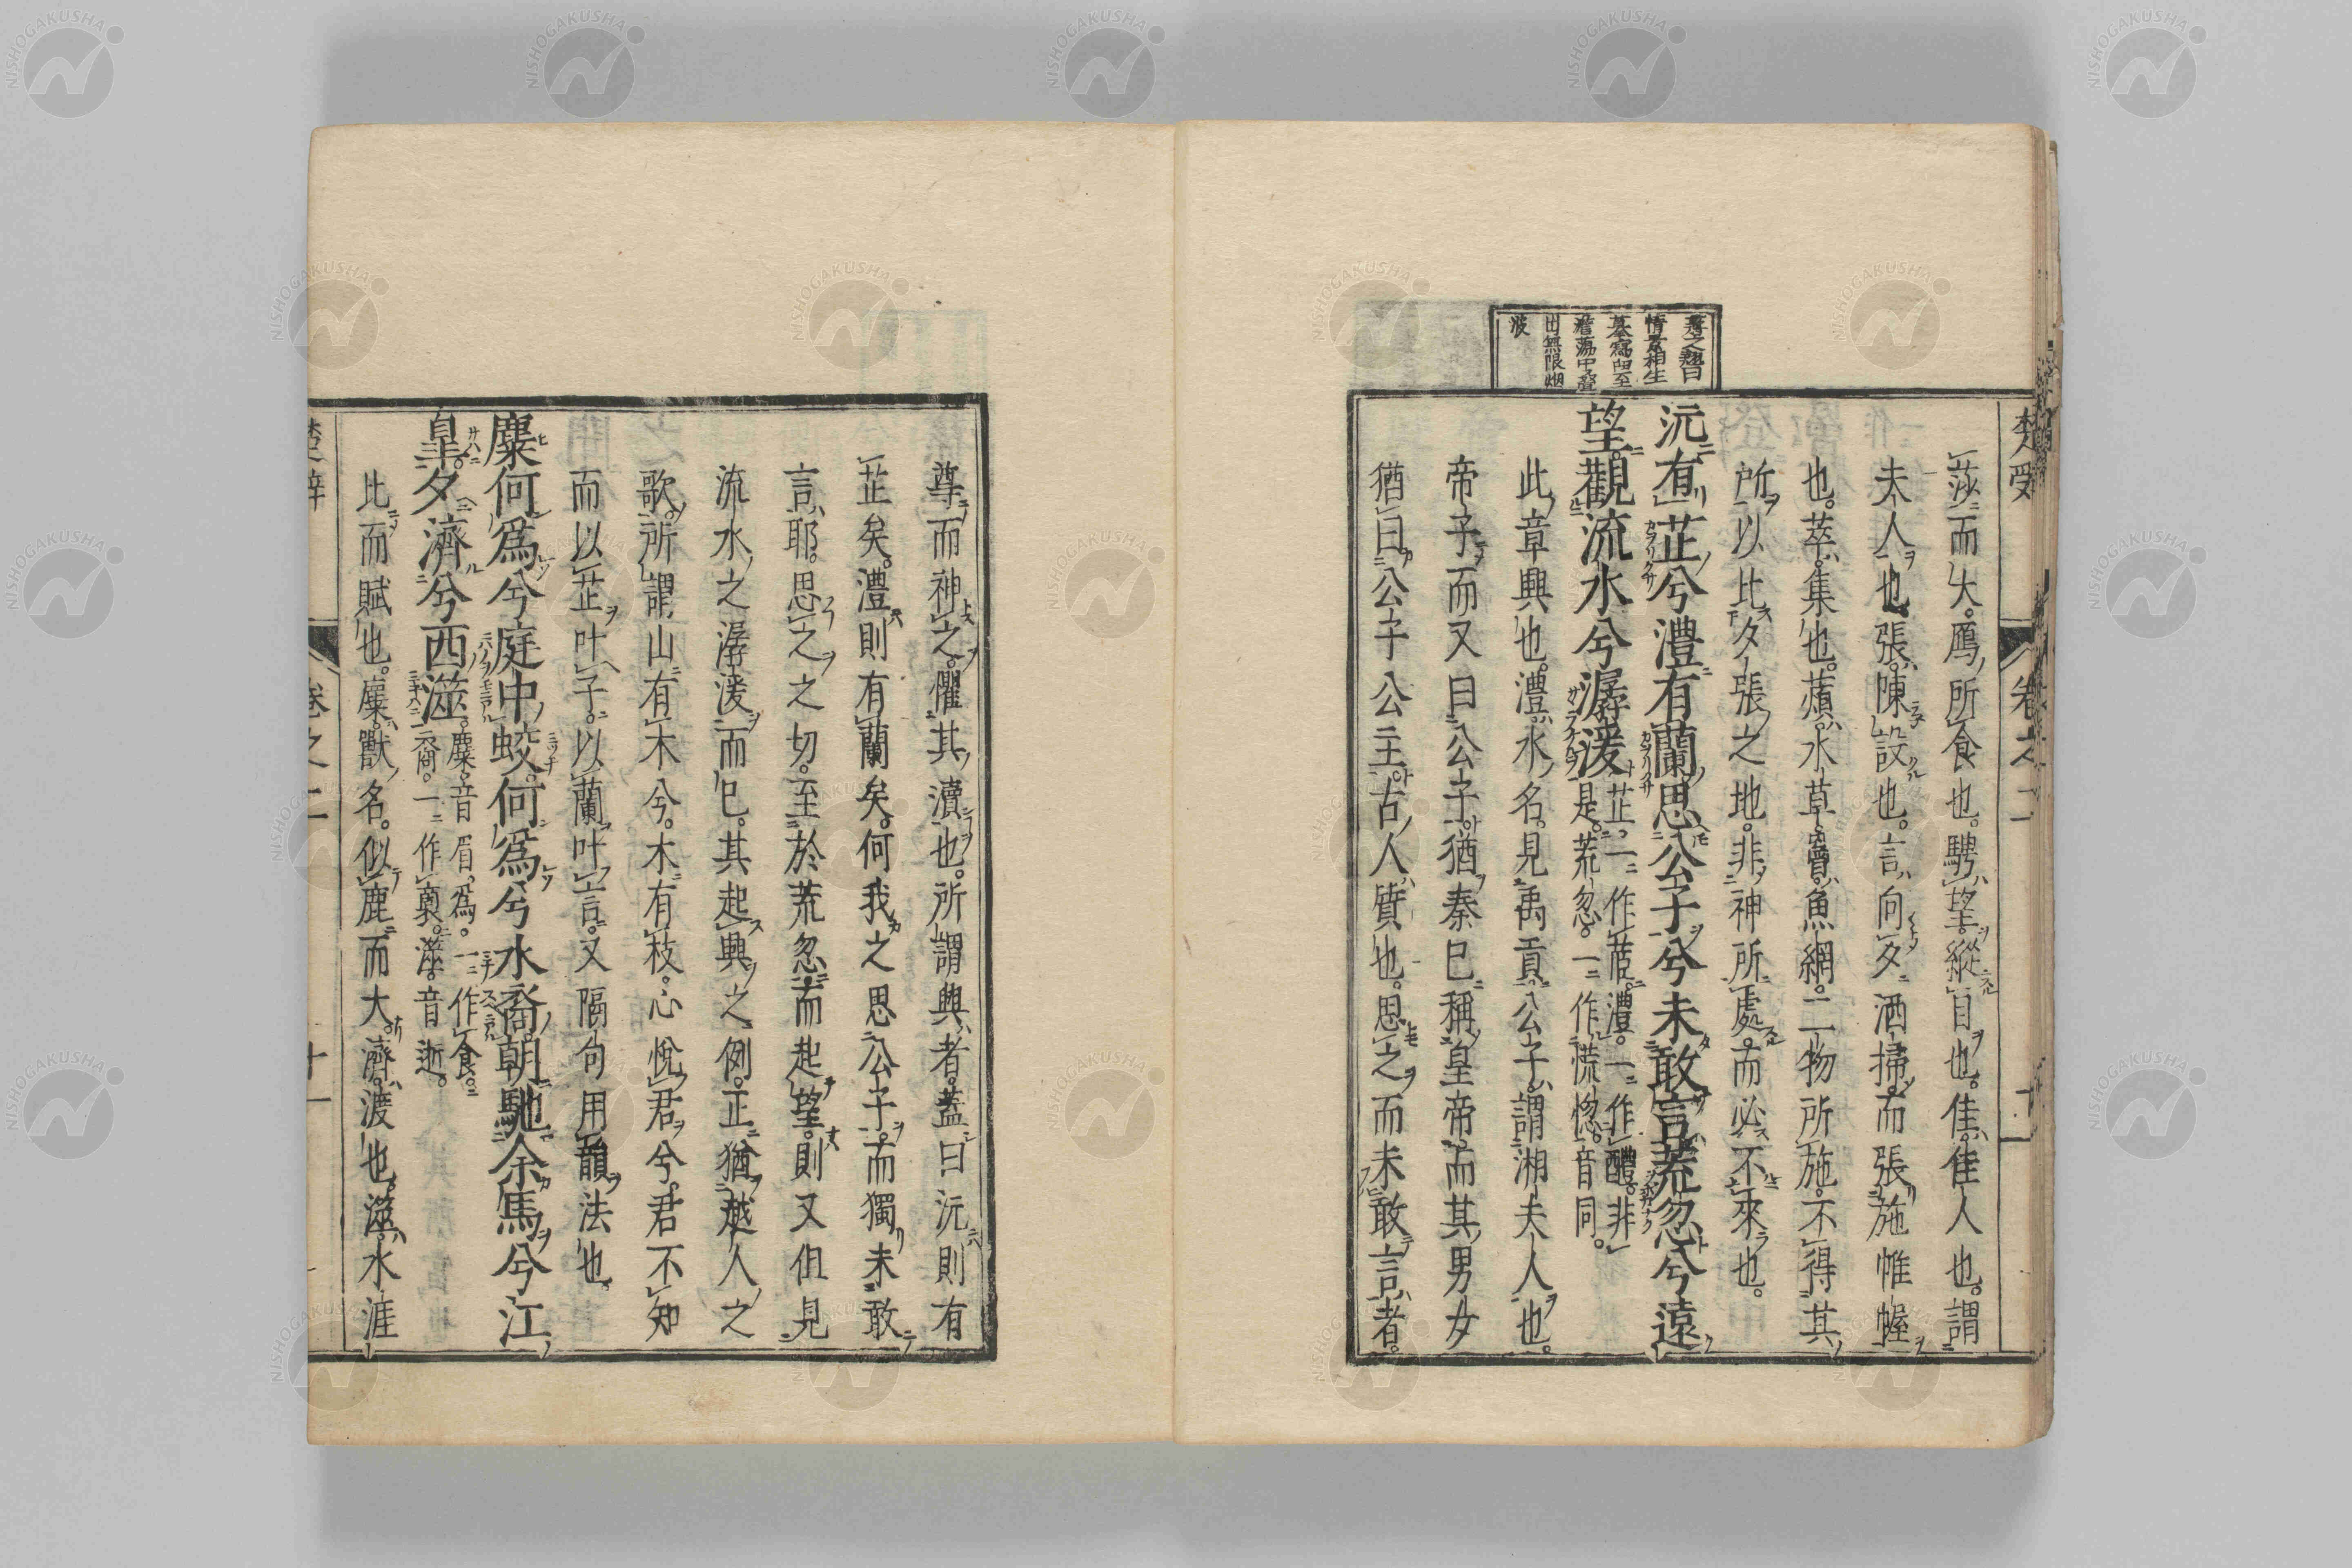 莎而大。鴈所食也。騁望。縱目也。佳佳人也。謂
夫人也。張陳設也。言向夕洒掃而張施帷幄
也。萃集也。蘋水草。罾魚網。二物所施。不得其
所。以比夕張之地。非神所處。而必不來也。
沅有芷兮澧有蘭思公子兮未敢言荒忽兮遠
望觀流水兮潺湲
芷一作茝。澧。一作醴。非
是。荒忽。一作慌惚。音同。
此章興也。澧水名。見禹貢。公子謂湘夫人也。
帝子而又曰公子。猶秦已稱皇帝。而其男女
猶曰公子公主。古人質也。思之而未敢言者。
情景相生
出無限烟
波
尊而神之。懼其瀆也。所謂興者。蓋曰沅則有
芷矣。澧則有蘭矣。何我之思公子。而獨未敢
言耶。思之之切。至於荒忽。而起望。則又但見
流水之潺湲而已。其起興之例。正猶越人之
歌。所謂山有木兮。木有枝。心悅君兮。君不知
而以芷叶子。以蘭叶言。又隔句用韻法也。
麋何爲兮庭中蛟何爲兮水裔朝馳余馬兮江
皐夕濟兮西澨
麋。音眉。爲。一作食。
裔。一作裛。澨。音逝。
比而賦也。麋獸名。似鹿而大。濟。渡也。澨水涯
卷之二
十一